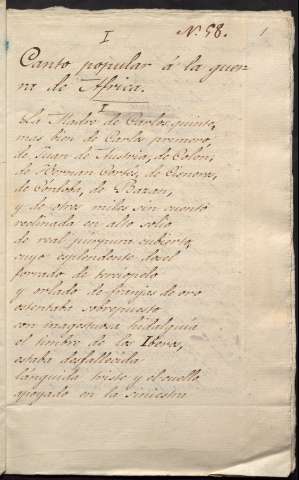 I
N.º 58.
1
Canto popular á la guer
ra de Africa.
I
La Madre de Carlos quinto,
mas bien de Carlos primero,
de Juan de Austria, de Colon,
de Hernan Cortés, de Cisneros,
de Córdoba, de Bazan,
y de otros miles sin cuento
reclinada en alto solio
de real púrpura cubierto,
cuyo esplendente dosel
forrado de terciopelo
y orlado de franjas de oro
ostentaba sobrepuesto
con magestuosa hidalguia
el timbre de los Iberos,
estaba desfallecida
lánguida triste y el cuello
apoyado en la siniestra